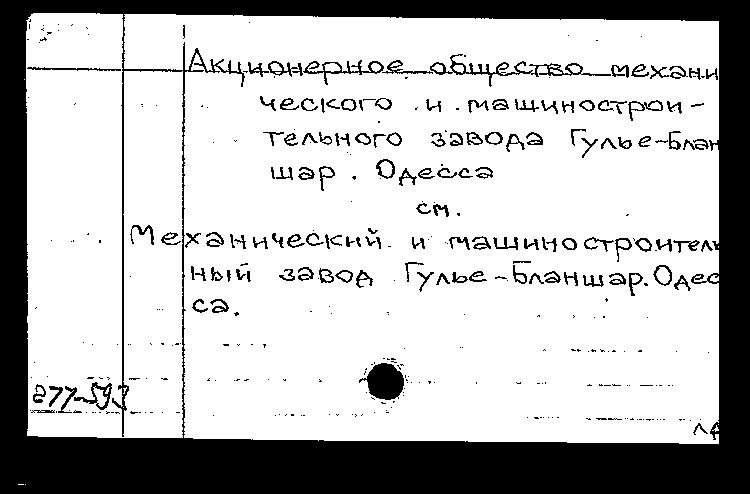 Акционерное общество механи
ческого и машинострои-
тельного завода Гулье-Блан
шар. Одесса
см.
Механический и машиностроитель
ный завод Гулье-Бланшар. Одес
са.
277-593